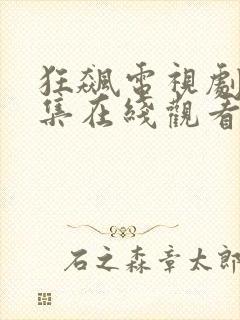 狂飆電視劇
集在綫觀看
石之森章太郎